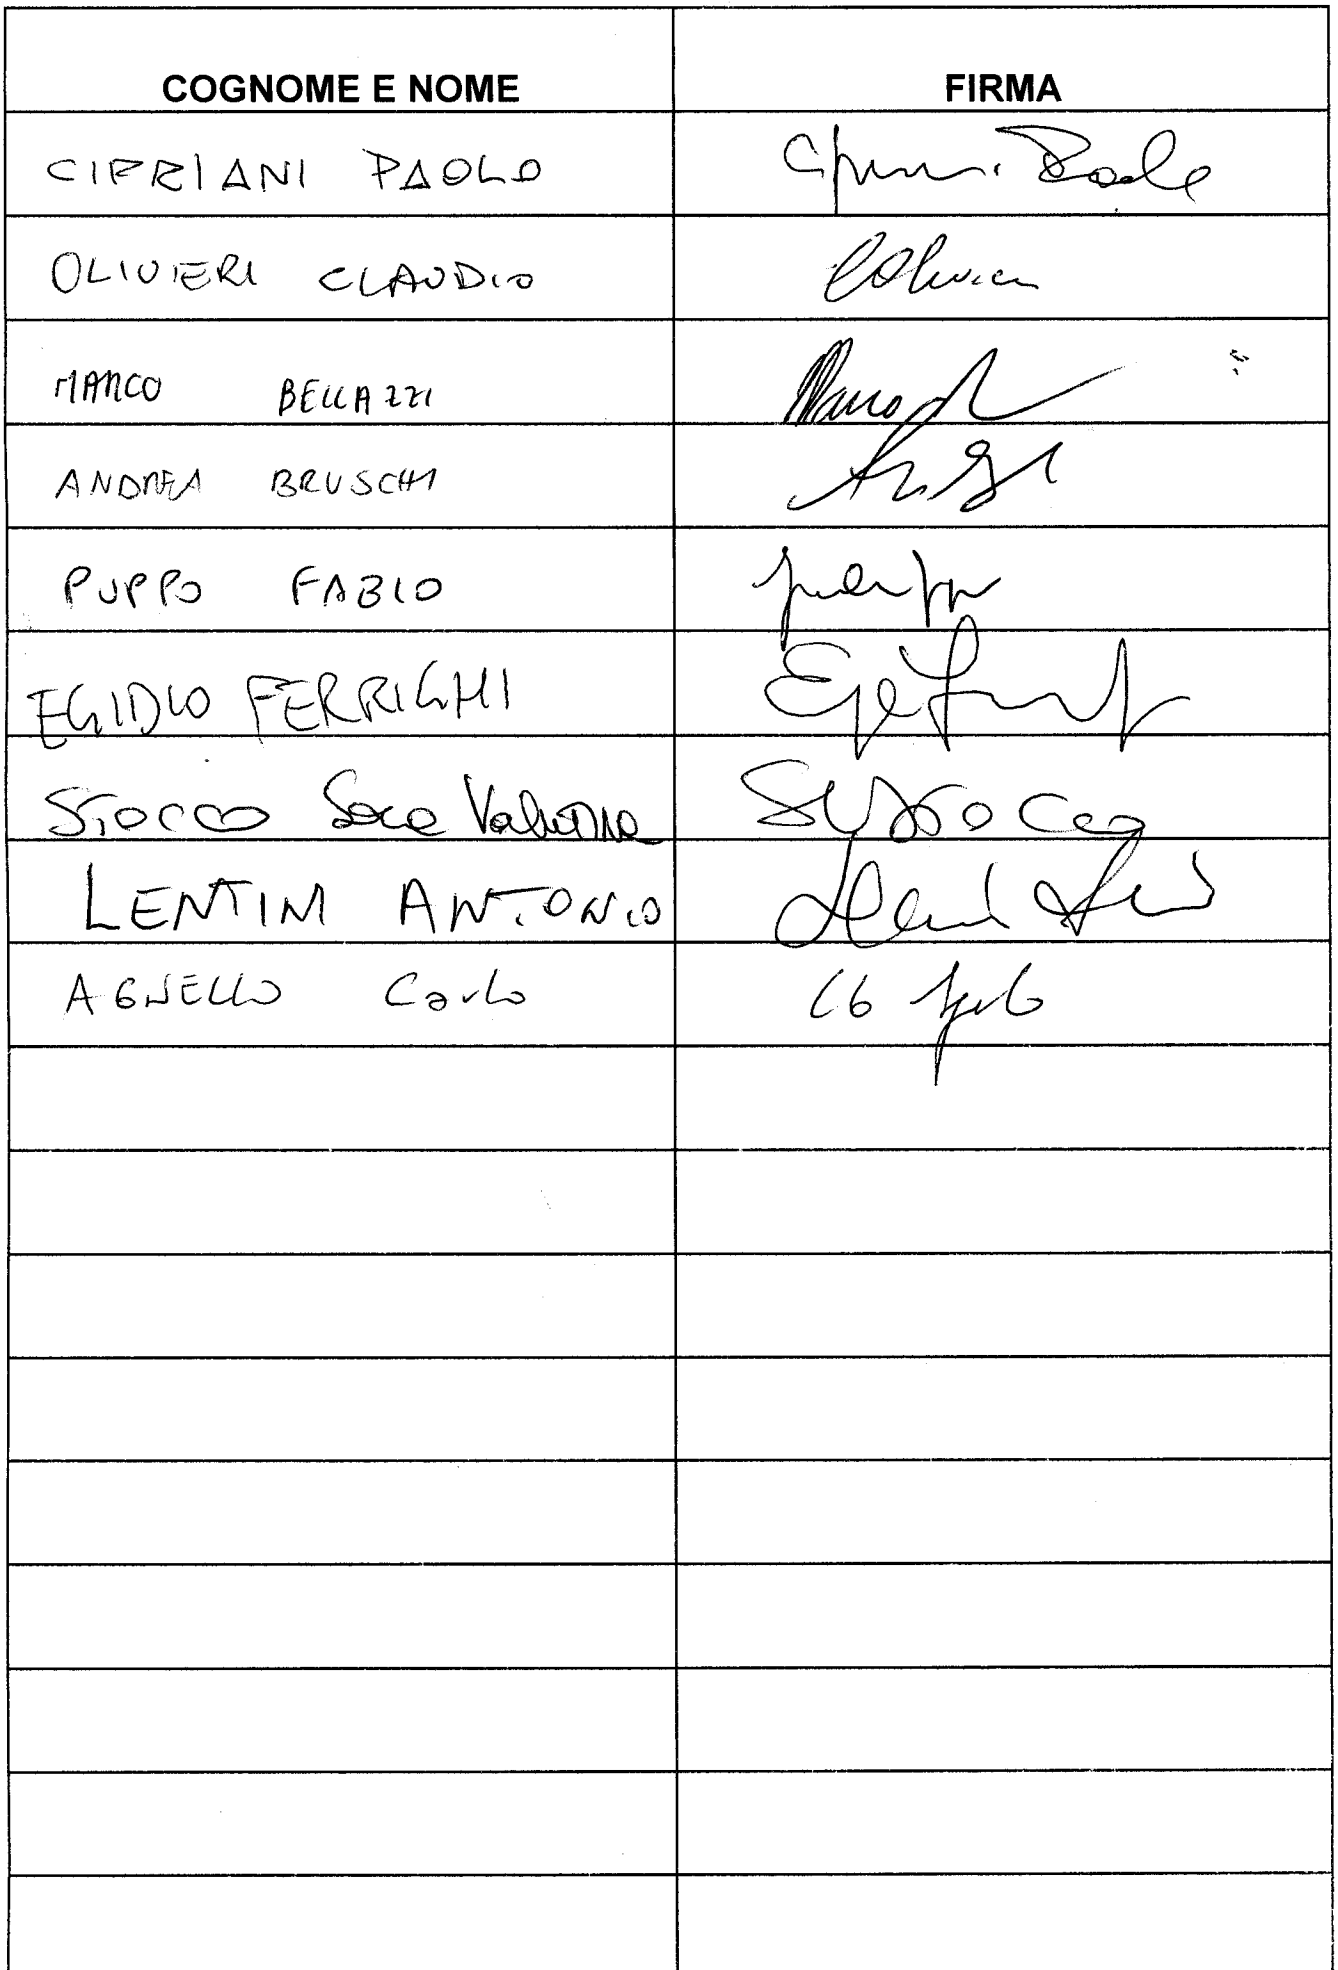 COGNOME E NOME FIRMA
CIPRIANI PAOLO Cipriani Paolo
OLIVIERI CLAUDIO COlivieri
MARCO BELLAZZI Marco
ANDREA BRUSCHI
PUPPO FABIO
EGIDIO FERRIGHI
STOCCO Sara Valentina SVStocco
LENTINI ANTONIO
AGNELLO Carlo